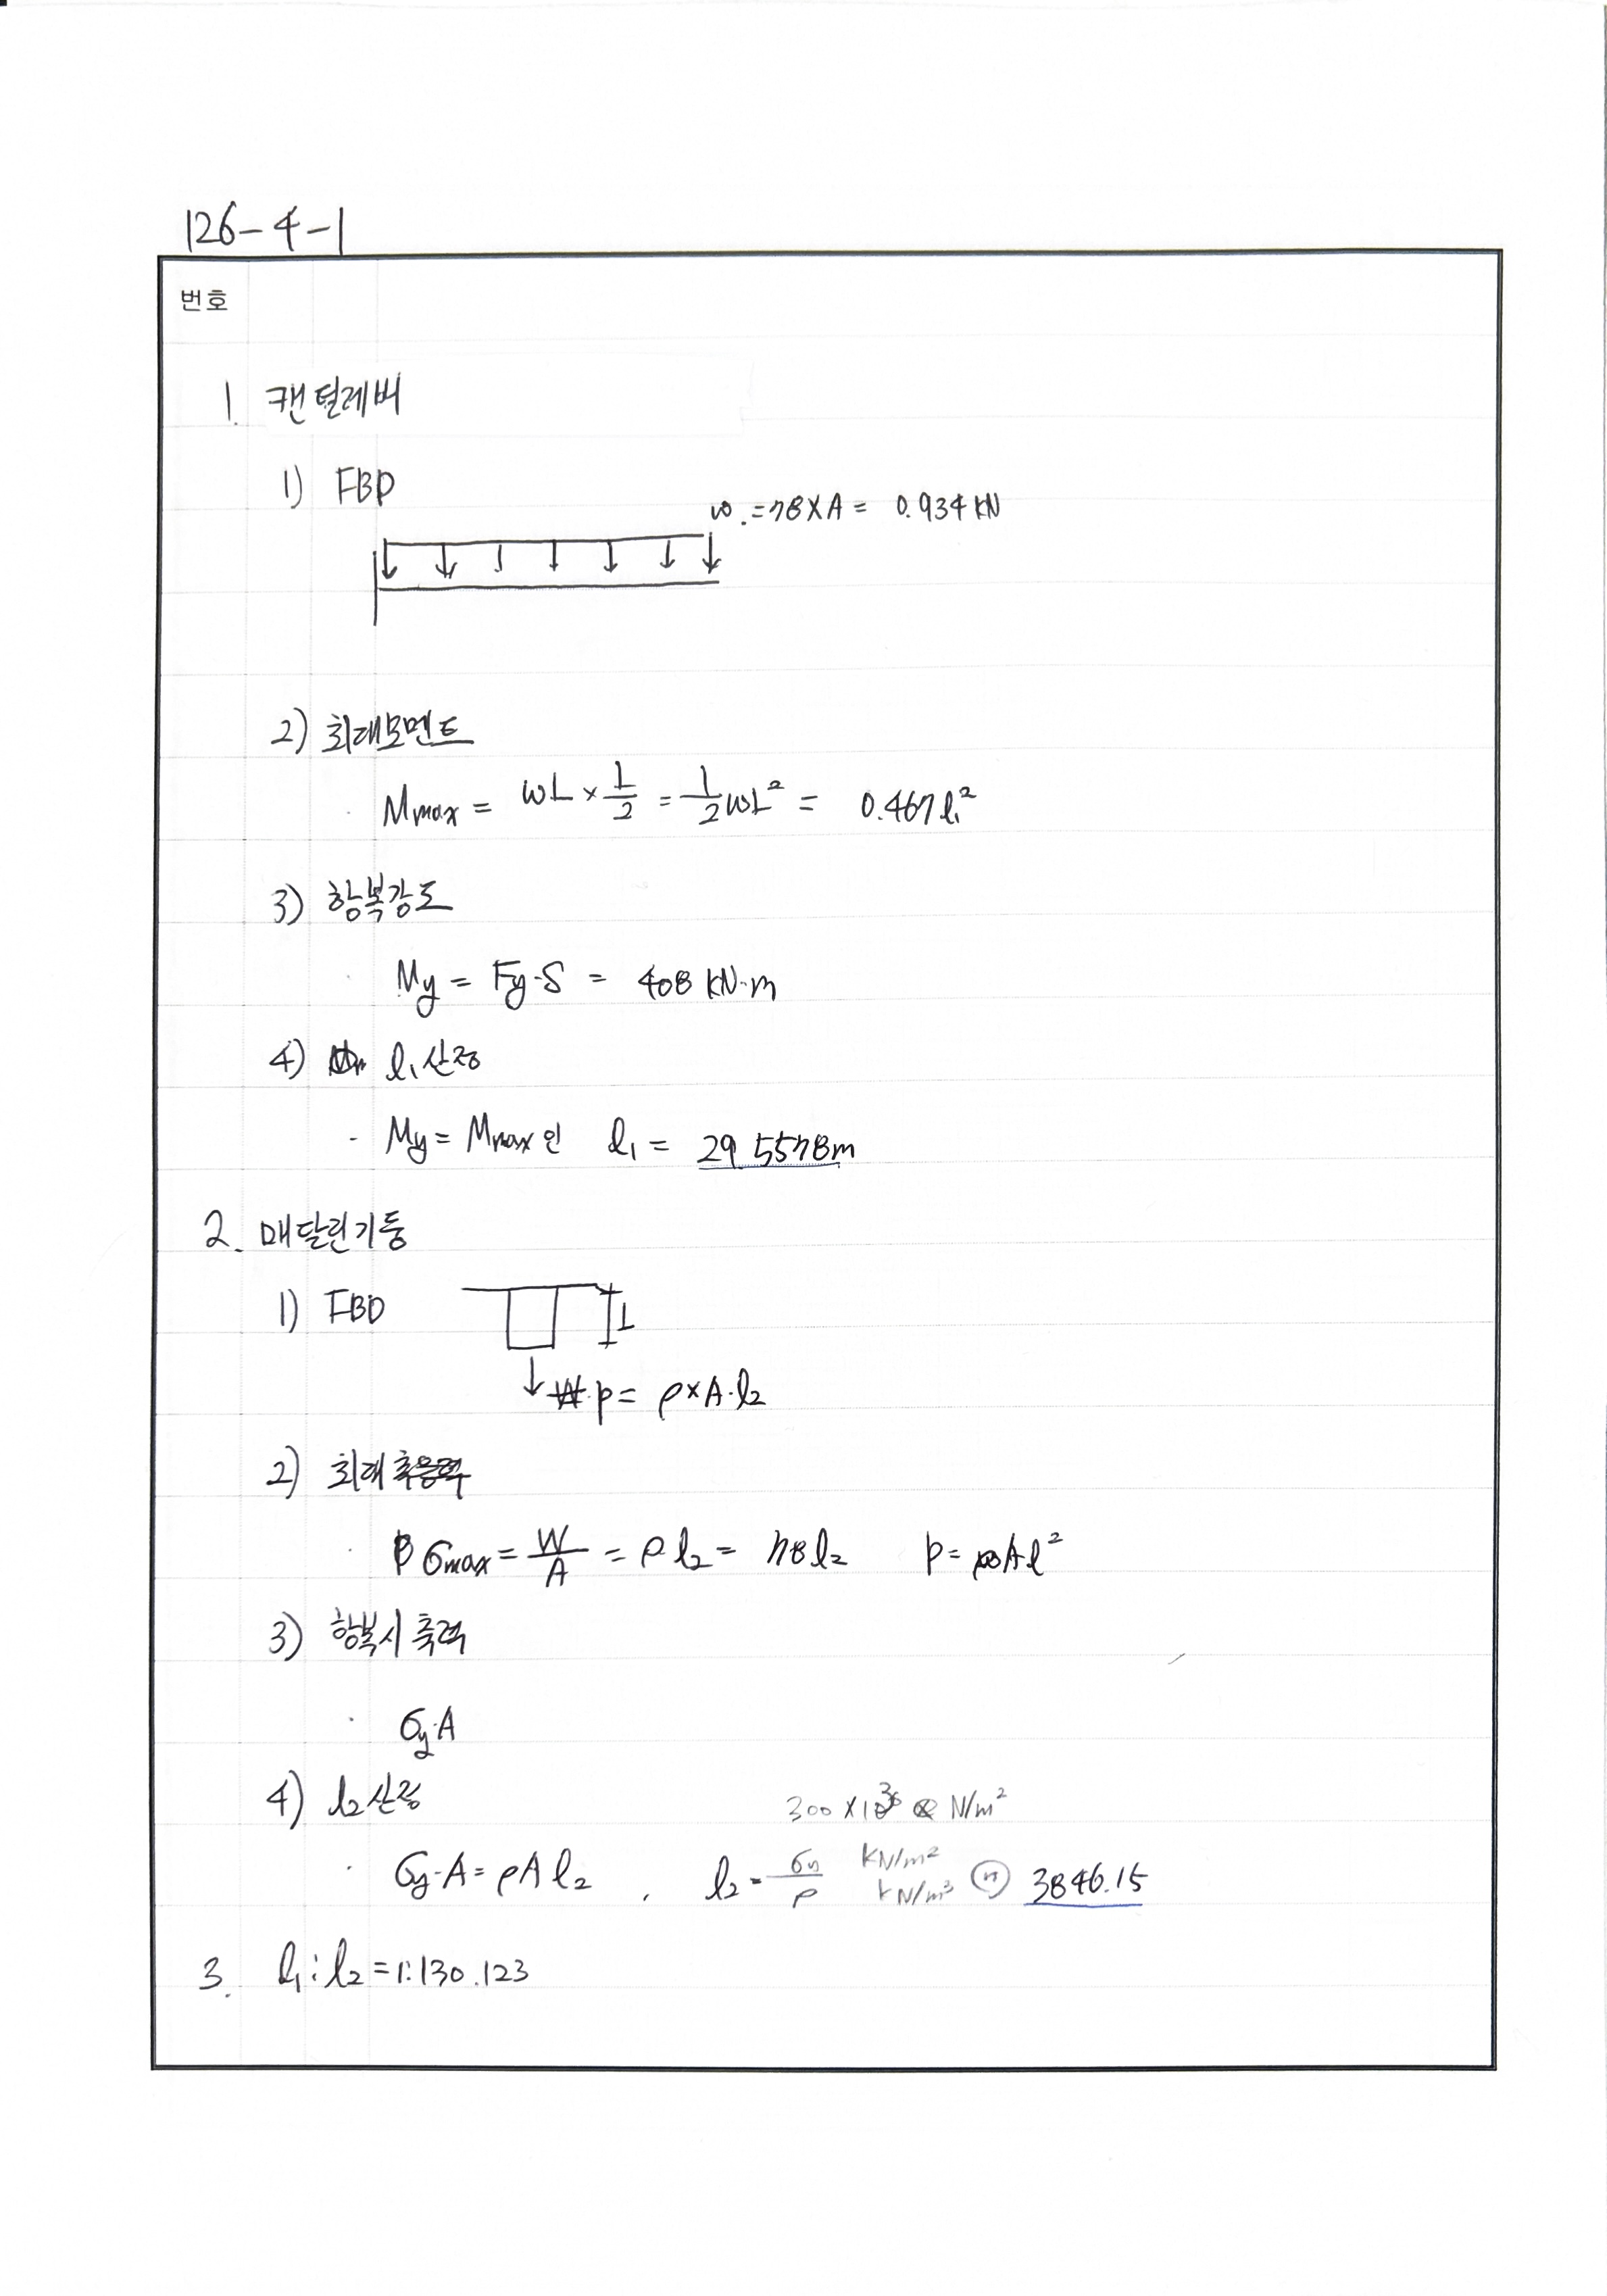 126-4-1
번호
1. 캔틸레버
1) FBD
w.=78×A= 0.934 kN
2) 최대모멘트
· Mmax = wL × L/2 = 1/2 wL² = 0.467 l₁²
3) 항복강도
· My = Fy·S = 408 kN·m
4) l₁ 산정
- My = Mmax 인 l₁ = 29.5578m
2. 매달린기둥
1) FBD
L
p = ρ×A·l₂
2) 최대
· σmax = W/A = ρ l₂ = 78 l₂ p= Al²
3) 항복시 축력
· σy·A
4) l₂ 산정
300 ×10³ N/m²
· σy·A = ρA l₂ , l₂ = σy/ρ kN/m² kN/m³ 3846.15
3. l₁ : l₂ = 1:130.123